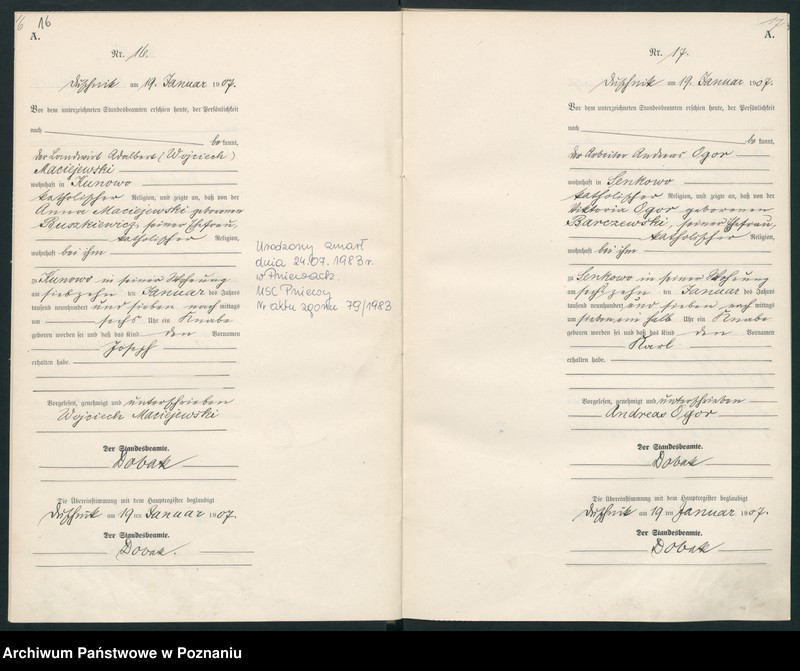 16
16
A.
Nr. 16.
Duschnik am 19. Januar 1907.
Vor dem unterzeichneten Standesbeamten erschien heute, der Persönlichkeit
nach
be kannt,
der Landwirt Adalbert (Wojciech)
Maciejewski
wohnhaft in Kunowo
katholischer Religion, und zeigte an, daß von der
Anna Maciejewski geborenen
Buszkiewicz, seiner Ehefrau,
katholischer Religion,
wohnhaft bei ihm
zu Kunowo in seiner Wohnung
am siebzehn ten Januar des Jahres
tausend neunhundert und sieben nach mittags
um sechs Uhr ein Knabe
geboren worden sei und daß das Kind den Vornamen
Joseph
erhalten habe.
Vorgelesen, genehmigt und unterschrieben
Wojciech Maciejewski
Der Standesbeamte.
Dobak
Die Übereinstimmung mit dem Hauptregister beglaubigt
Duschnik am 19 ten Januar 1907.
Der Standesbeamte.
Dobak.
Urodzony zmarł
dnia 24.07.1983 r.
w Pniewach.
USC Pniewy
Nr aktu zgonu 79/1983
17
A.
Nr. 17.
Duschnik am 19. Januar 1907.
Vor dem unterzeichneten Standesbeamten erschien heute, der Persönlichkeit
nach
be kannt,
der Arbeiter Andreas Ogor
wohnhaft in Senkowo
katholischer Religion, und zeigte an, daß von der
Viktoria Ogor geborenen
Barczewski, seiner Ehefrau,
katholischer Religion,
wohnhaft bei ihm
zu Senkowo in seiner Wohnung
am sechzehn ten Januar des Jahres
tausend neunhundert und sieben nach mittags
um halb Uhr ein Knabe
geboren worden sei und daß das Kind den Vornamen
Karl
erhalten habe.
Vorgelesen, genehmigt und unterschrieben
Andreas Ogor
Der Standesbeamte.
Dobak
Die Übereinstimmung mit dem Hauptregister beglaubigt
Duschnik am 19 ten Januar 1907.
Der Standesbeamte.
Dobak
Archiwum Państwowe w Poznaniu